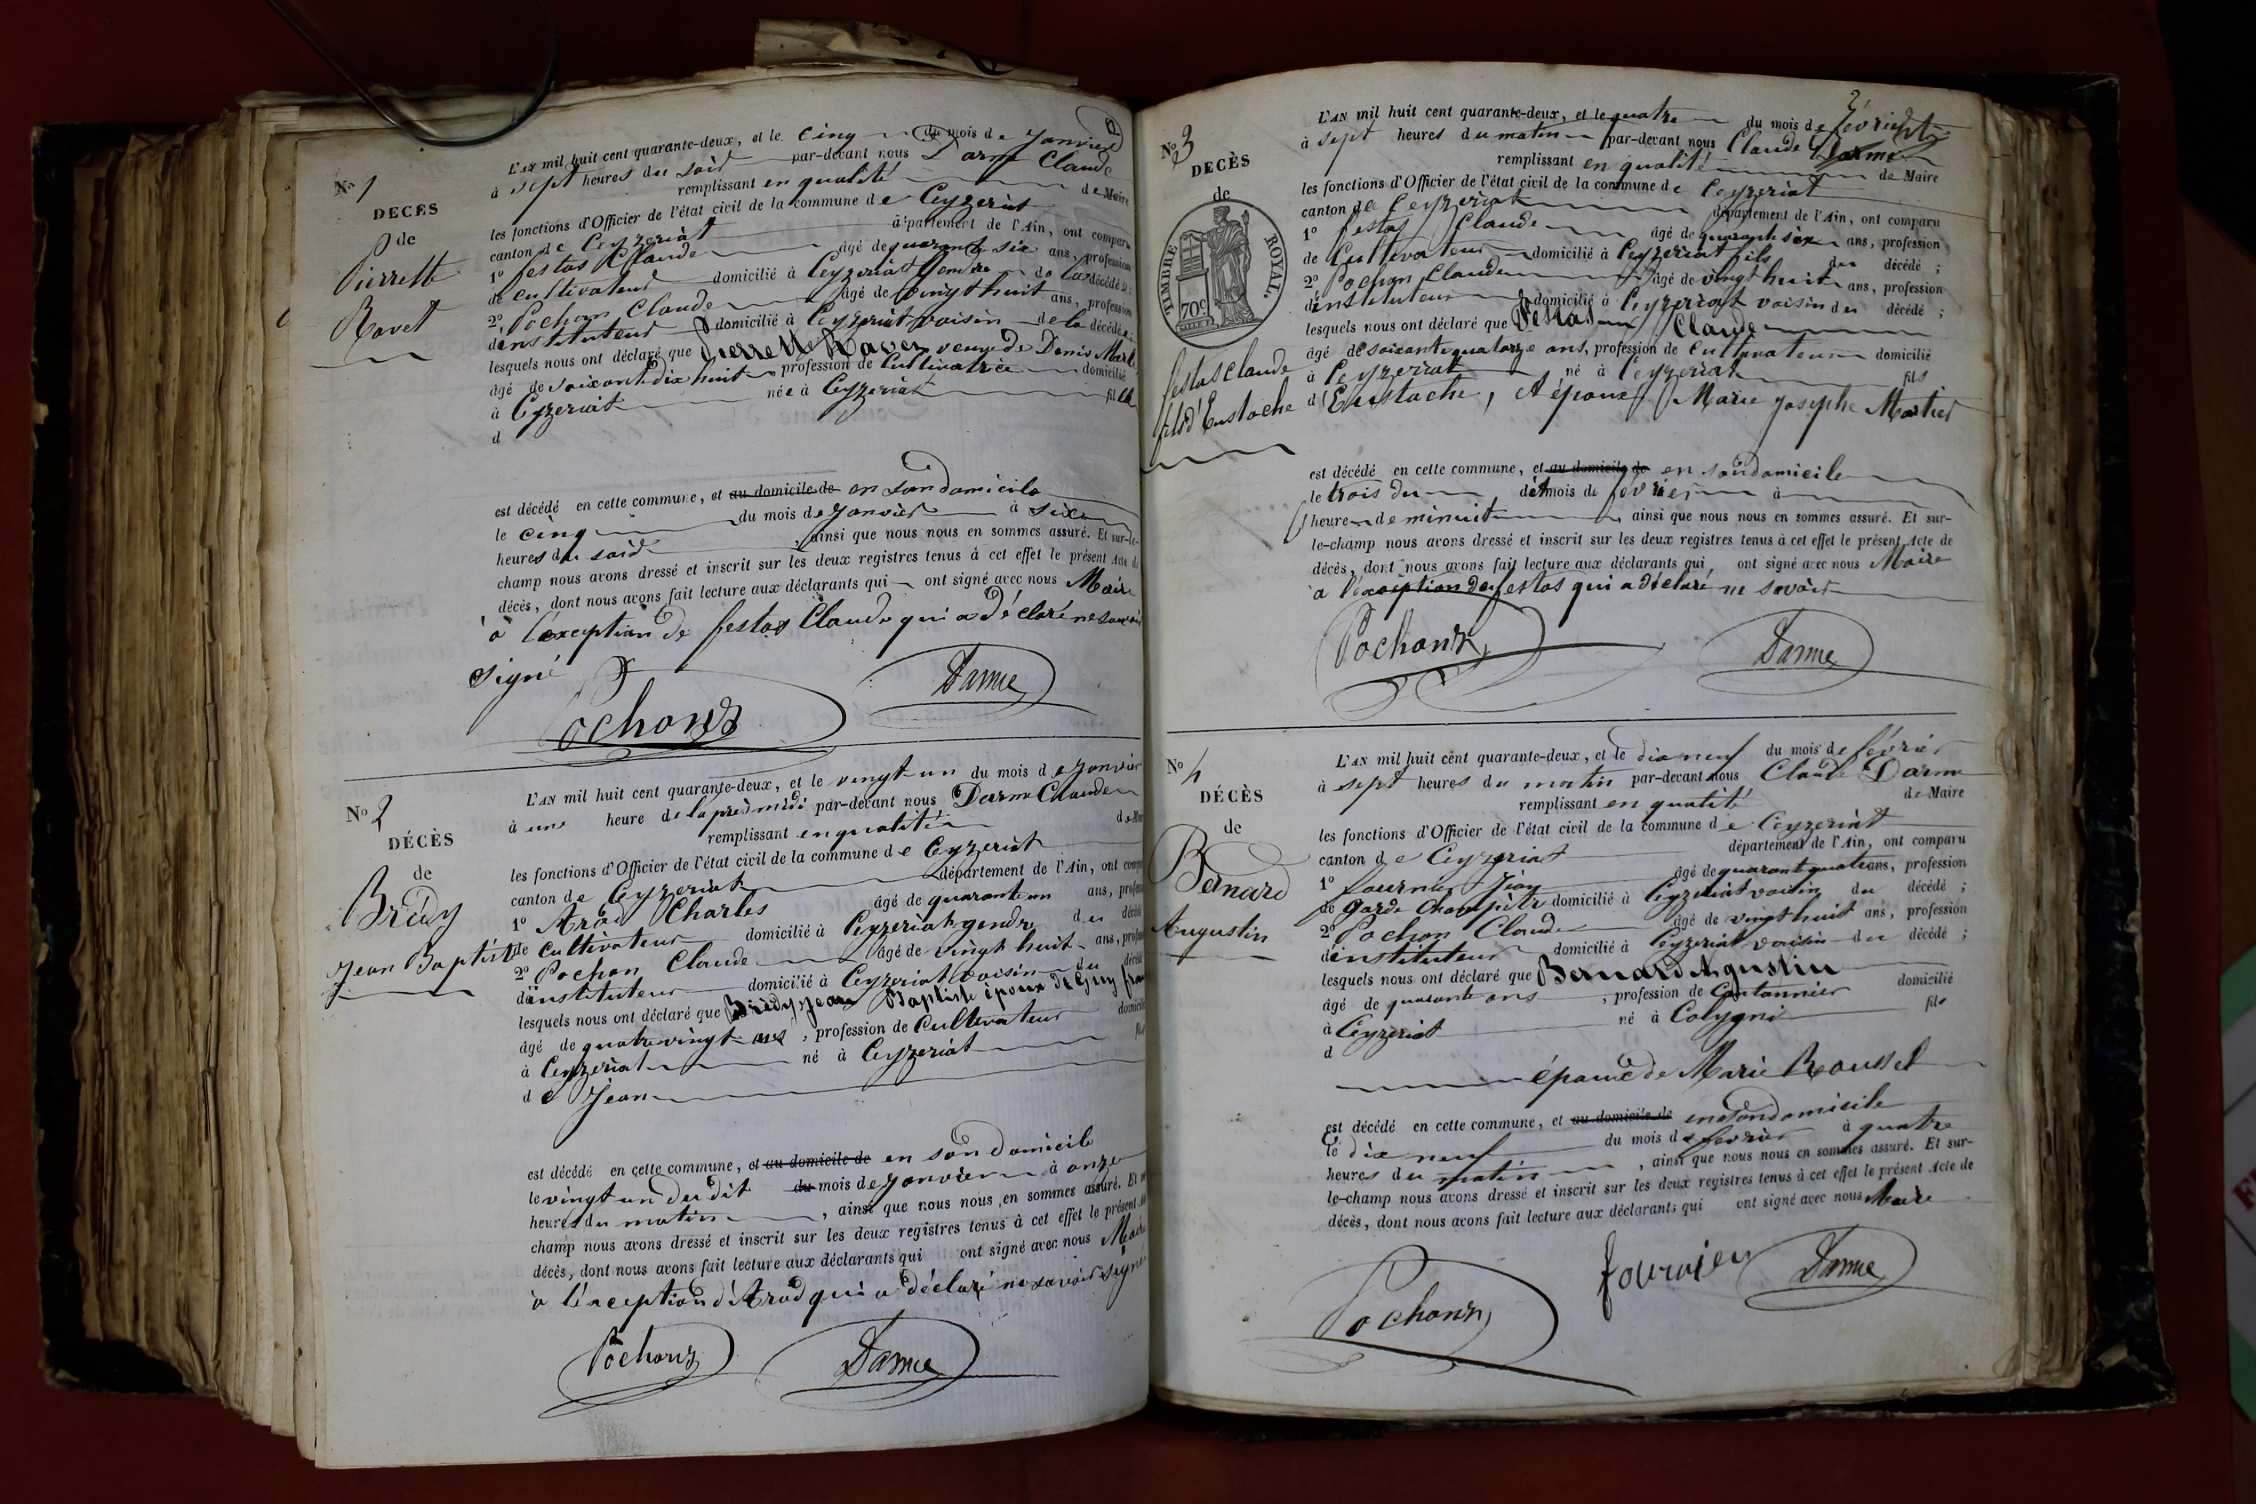 L'AN mil huit cent quarante-deux, et le cinq du mois de Janvier
à sept heures du soir par-devant nous Darme Claude
remplissant en qualité de Maire
les fonctions d'Officier de l'état civil de la commune de Ceyzeriat
canton de Ceyzeriat département de l'Ain, ont comparu
1º festas Claude âgé de quarante six ans, profession
de cultivateur domicilié à Ceyzeriat Gendre de la décédée
2º Pochon Claude âgé de vingt huit ans, profession
d'instituteur domicilié à Ceyzeriat voisin de la décédée
lesquels nous ont déclaré que Pierrette Ravet veuve de Denis
âgé de soixante dix huit profession de Cultivatrice domicilié
à Ceyzeriat née à Ceyzeriat fille
d
est décédé en cette commune, et au domicile de en son domicile
le cinq du mois de Janvier à six
heures du soir , ainsi que nous nous en sommes assuré. Et sur-le-
champ nous avons dressé et inscrit sur les deux registres tenus à cet effet le présent Acte de
décès, dont nous avons fait lecture aux déclarants qui ont signé avec nous Maire
à l'exception de festas Claude qui a déclaré ne savoir
signé
Pochon Darme
Nº 1
DÉCÈS
de
Pierrette
Ravet
L'AN mil huit cent quarante-deux, et le vingt un du mois de Janvier
à une heure de la près midi par-devant nous Darme Claude
remplissant en qualité de Maire
les fonctions d'Officier de l'état civil de la commune de Ceyzeriat
canton de Ceyzeriat département de l'Ain, ont comparu
1º Charles âgé de quarante un ans, profession
de Cultivateur domicilié à Ceyzeriat gendre du décédé
2º Pochon Claude âgé de vingt huit ans, profession
d'instituteur domicilié à Ceyzeriat voisin du décédé
lesquels nous ont déclaré que Brédy Jean Baptiste époux de Guy
âgé de quatre vingt ans , profession de Cultivateur domicilié
à Ceyzeriat né à Ceyzeriat fils
de Jean
est décédé en cette commune, et au domicile de en son domicile
le vingt un dudit du mois de Janvier à onze
heures du matin , ainsi que nous nous en sommes assuré. Et sur
champ nous avons dressé et inscrit sur les deux registres tenus à cet effet le présent
décès, dont nous avons fait lecture aux déclarants qui ont signé avec nous Maire
à l'exception d' qui a déclaré ne savoir signé
Pochon Darme
Nº 2
DÉCÈS
de
Brédy
Jean Baptiste
2
L'AN mil huit cent quarante-deux, et le quatre du mois de février
à sept heures du matin par-devant nous Claude Darme
remplissant en qualité de Maire
les fonctions d'Officier de l'état civil de la commune de Ceyzeriat
canton de Ceyzeriat département de l'Ain, ont comparu
1º festas Claude âgé de quarante six ans, profession
de Cultivateur domicilié à Ceyzeriat fils du décédé ;
2º Pochon Claude âgé de vingt huit ans, profession
d'instituteur domicilié à Ceyzeriat voisin du décédé ;
lesquels nous ont déclaré que Festas Claude
âgé de soixante quatorze ans, profession de cultivateur domicilié
à Ceyzeriat né à Ceyzeriat fils
d'Eustache, et époux Marie Josephe
est décédé en cette commune, et au domicile de en son domicile
le trois du dit mois de février à
heure de minuit ainsi que nous nous en sommes assuré. Et sur-
le-champ nous avons dressé et inscrit sur les deux registres tenus à cet effet le présent Acte de
décès, dont nous avons fait lecture aux déclarants qui, ont signé avec nous Maire
à l'exception de festas qui a déclaré ne savoir
Pochon Darme
Nº 3
DÉCÈS
de
TIMBRE ROYAL.
70c.
festas Claude
fils d'Eustache
L'AN mil huit cent quarante-deux, et le dix neuf du mois de février
à sept heures du matin par-devant nous Claude Darme
remplissant en qualité de Maire
les fonctions d'Officier de l'état civil de la commune de Ceyzeriat
canton de Ceyzeriat département de l'Ain, ont comparu
1º fournier Jean âgé de quarante quatre ans, profession
de garde Champêtre domicilié à Ceyzeriat voisin du décédé ;
2º Pochon Claude âgé de vingt huit ans, profession
d'instituteur domicilié à Ceyzeriat voisin du décédé ;
lesquels nous ont déclaré que Bernard Agustin
âgé de quarante ans , profession de Cantonnier domicilié
à Ceyzeriat né à Colygni fils
d
époux de Marie Roussel
est décédé en cette commune, et au domicile de en son domicile
le dix neuf du mois de février à quatre
heures du matin , ainsi que nous nous en sommes assuré. Et sur-
le-champ nous avons dressé et inscrit sur les deux registres tenus à cet effet le présent Acte de
décès, dont nous avons fait lecture aux déclarants qui ont signé avec nous Maire
fournier
Pochon Darme
Nº 4
DÉCÈS
de
Bernard
Augustin